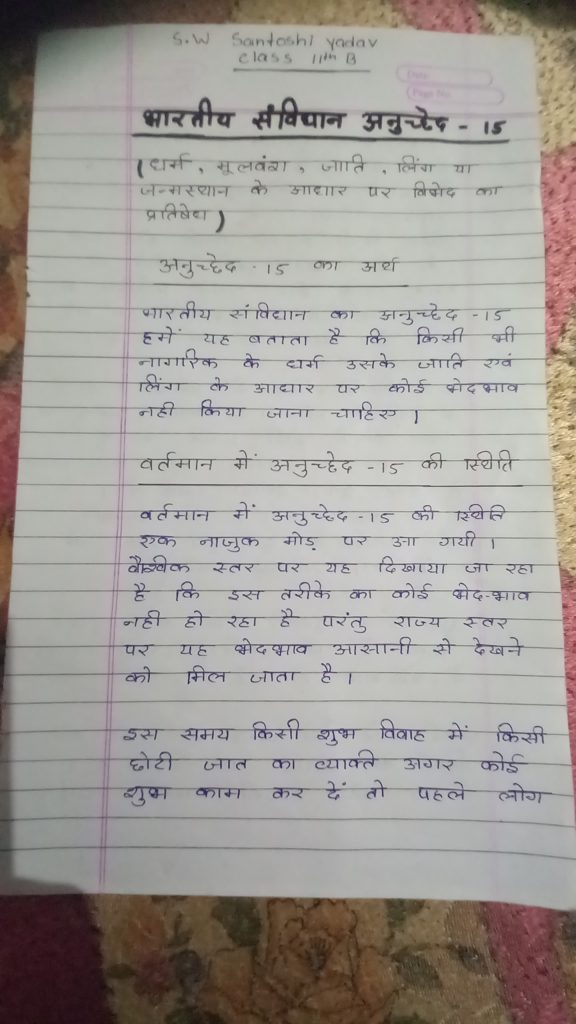 S.W Santoshi Yadav
Class 11th B
Date:
Page No.
भारतीय संविधान अनुच्छेद - 15
(धर्म, मूलवंश, जाति, लिंग या
जन्मस्थान के आधार पर विभेद का
प्रतिषेध)
अनुच्छेद - 15 का अर्थ
भारतीय संविधान का अनुच्छेद -15
हमें यह बताता है कि किसी भी
नागरिक के धर्म उसके जाति एवं
लिंग के आधार पर कोई भेदभाव
नही किया जाना चाहिए।
वर्तमान में अनुच्छेद -15 की स्थिति
वर्तमान में अनुच्छेद -15 की स्थिति
एक नाजुक मोड़ पर आ गयी।
वैश्विक स्तर पर यह दिखाया जा रहा
है कि इस तरीके का कोई भेद-भाव
नही हो रहा है परंतु राज्य स्तर
पर यह भेदभाव आसानी से देखने
को मिल जाता है।
इस समय किसी शुभ विवाह में किसी
छोटी जात का व्यक्ति अगर कोई
शुभ काम कर दें तो पहले लोग